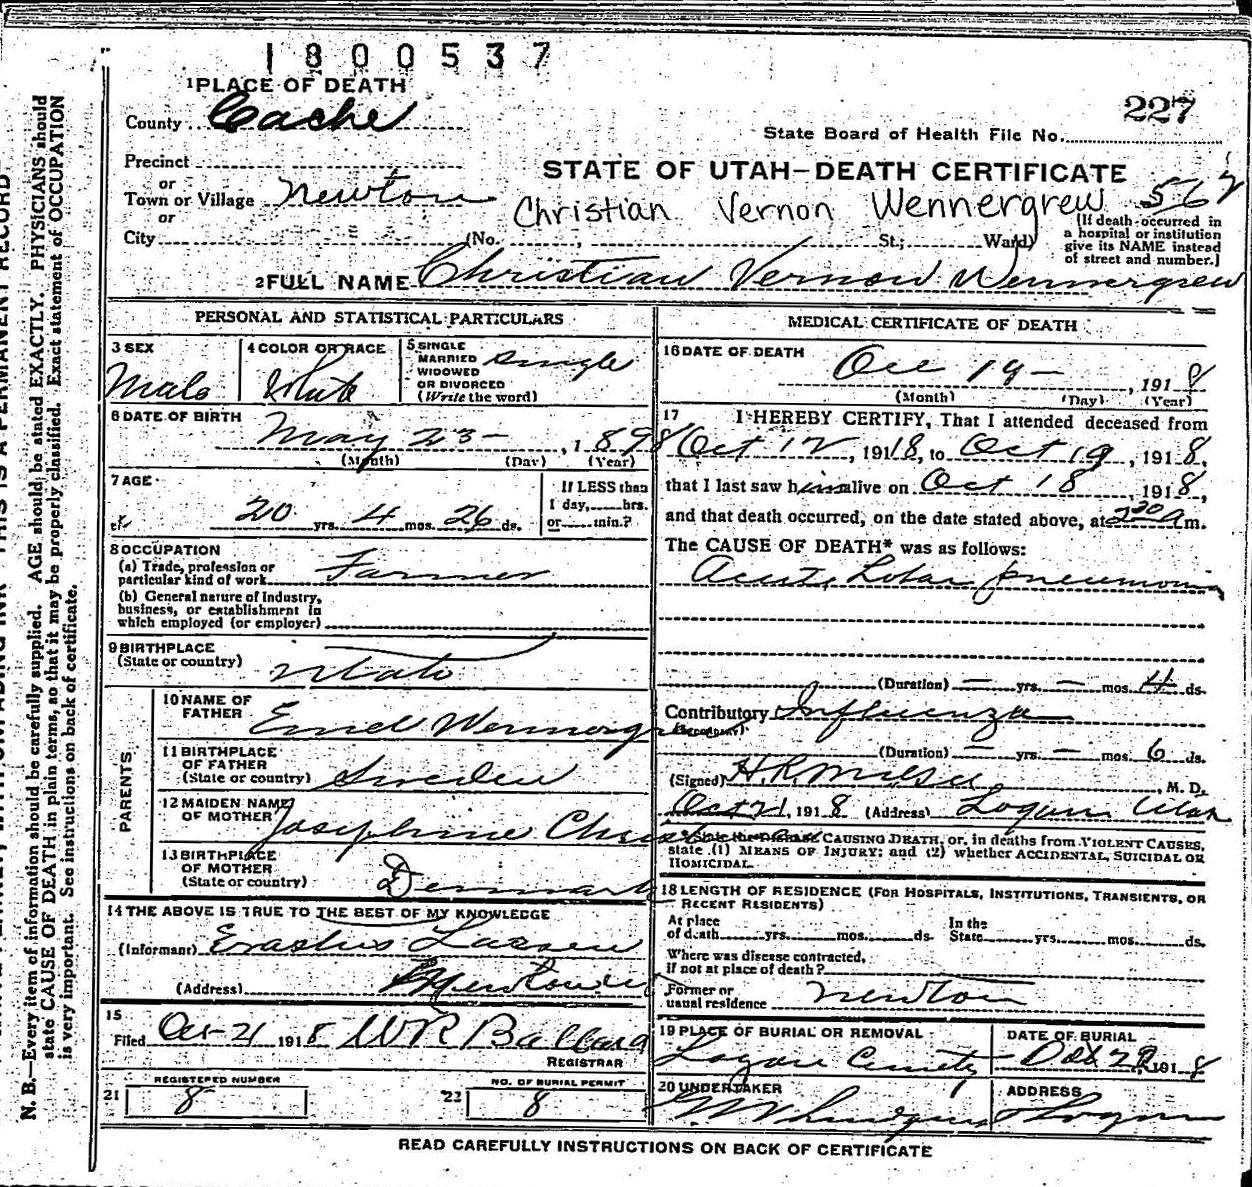 1800537
1 PLACE OF DEATH
County Cache
227
State Board of Health File No.
Precinct
or
STATE OF UTAH—DEATH CERTIFICATE
Town or Village Newton
Christian Vernon Wennergrew 567
or
City (No. , St.; Ward)
(If death occurred in
a hospital or institution
give its NAME instead
of street and number.)
2 FULL NAME Christian Vernon Wennergrew
PERSONAL AND STATISTICAL PARTICULARS
3 SEX
Male
4 COLOR OR RACE
White
5 SINGLE
MARRIED
WIDOWED
OR DIVORCED
(Write the word)
Single
6 DATE OF BIRTH
May 23 - , 1898
(Month) (Day) (Year)
7 AGE
20 yrs. 4 mos. 26 ds.
If LESS than
1 day, hrs.
or min.?
8 OCCUPATION
(a) Trade, profession or
particular kind of work Farmer
(b) General nature of Industry,
business, or establishment in
which employed (or employer)
9 BIRTHPLACE
(State or country) Utah
PARENTS
10 NAME OF
FATHER
11 BIRTHPLACE
OF FATHER
(State or country) Sweden
12 MAIDEN NAME
OF MOTHER Josephine
13 BIRTHPLACE
OF MOTHER
(State or country) Denmark
14 THE ABOVE IS TRUE TO THE BEST OF MY KNOWLEDGE
(Informant) Erastus Larsen
(Address) Newton
15
Filed Oct 21 1918 W R Ballard
REGISTRAR
21 REGISTERED NUMBER
8
22 NO. OF BURIAL PERMIT
8
MEDICAL CERTIFICATE OF DEATH
16 DATE OF DEATH
Oct 19 - , 1918
(Month) (Day) (Year)
17 I HEREBY CERTIFY, That I attended deceased from
Oct 12, 1918, to Oct 19, 1918,
that I last saw him alive on Oct 18, 1918,
and that death occurred, on the date stated above, at 2 30 a m.
The CAUSE OF DEATH* was as follows:
Acute Lobar pneumonia
(Duration) — yrs. — mos. 4 ds.
Contributory Influenza
(Secondary)
(Duration) — yrs. — mos. 6 ds.
(Signed) H.R. , M. D.
Oct 21, 1918 (Address) Logan Utah
*State the Disease CAUSING DEATH, or, in deaths from VIOLENT CAUSES,
state (1) MEANS OF INJURY; and (2) whether ACCIDENTAL, SUICIDAL OR
HOMICIDAL.
18 LENGTH OF RESIDENCE (FOR HOSPITALS, INSTITUTIONS, TRANSIENTS, OR
RECENT RESIDENTS)
At place In the
of death yrs. mos. ds. State yrs. mos. ds.
Where was disease contracted,
if not at place of death?
Former or
usual residence Newton
19 PLACE OF BURIAL OR REMOVAL
Logan Cemetery
DATE OF BURIAL
1918
20 UNDERTAKER
ADDRESS
Logan
READ CAREFULLY INSTRUCTIONS ON BACK OF CERTIFICATE
N. B.—Every item of information should be carefully supplied. AGE should be stated EXACTLY. PHYSICIANS should
state CAUSE OF DEATH in plain terms, so that it may be properly classified. Exact statement of OCCUPATION
is very important. See instructions on back of certificate.